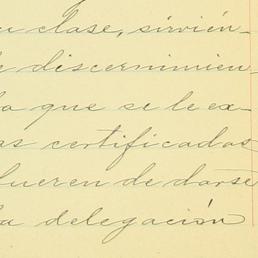 u clase, sirvién-
e discernimien-
lo que se le ex-
as certificados
fueren de darse
la delegación